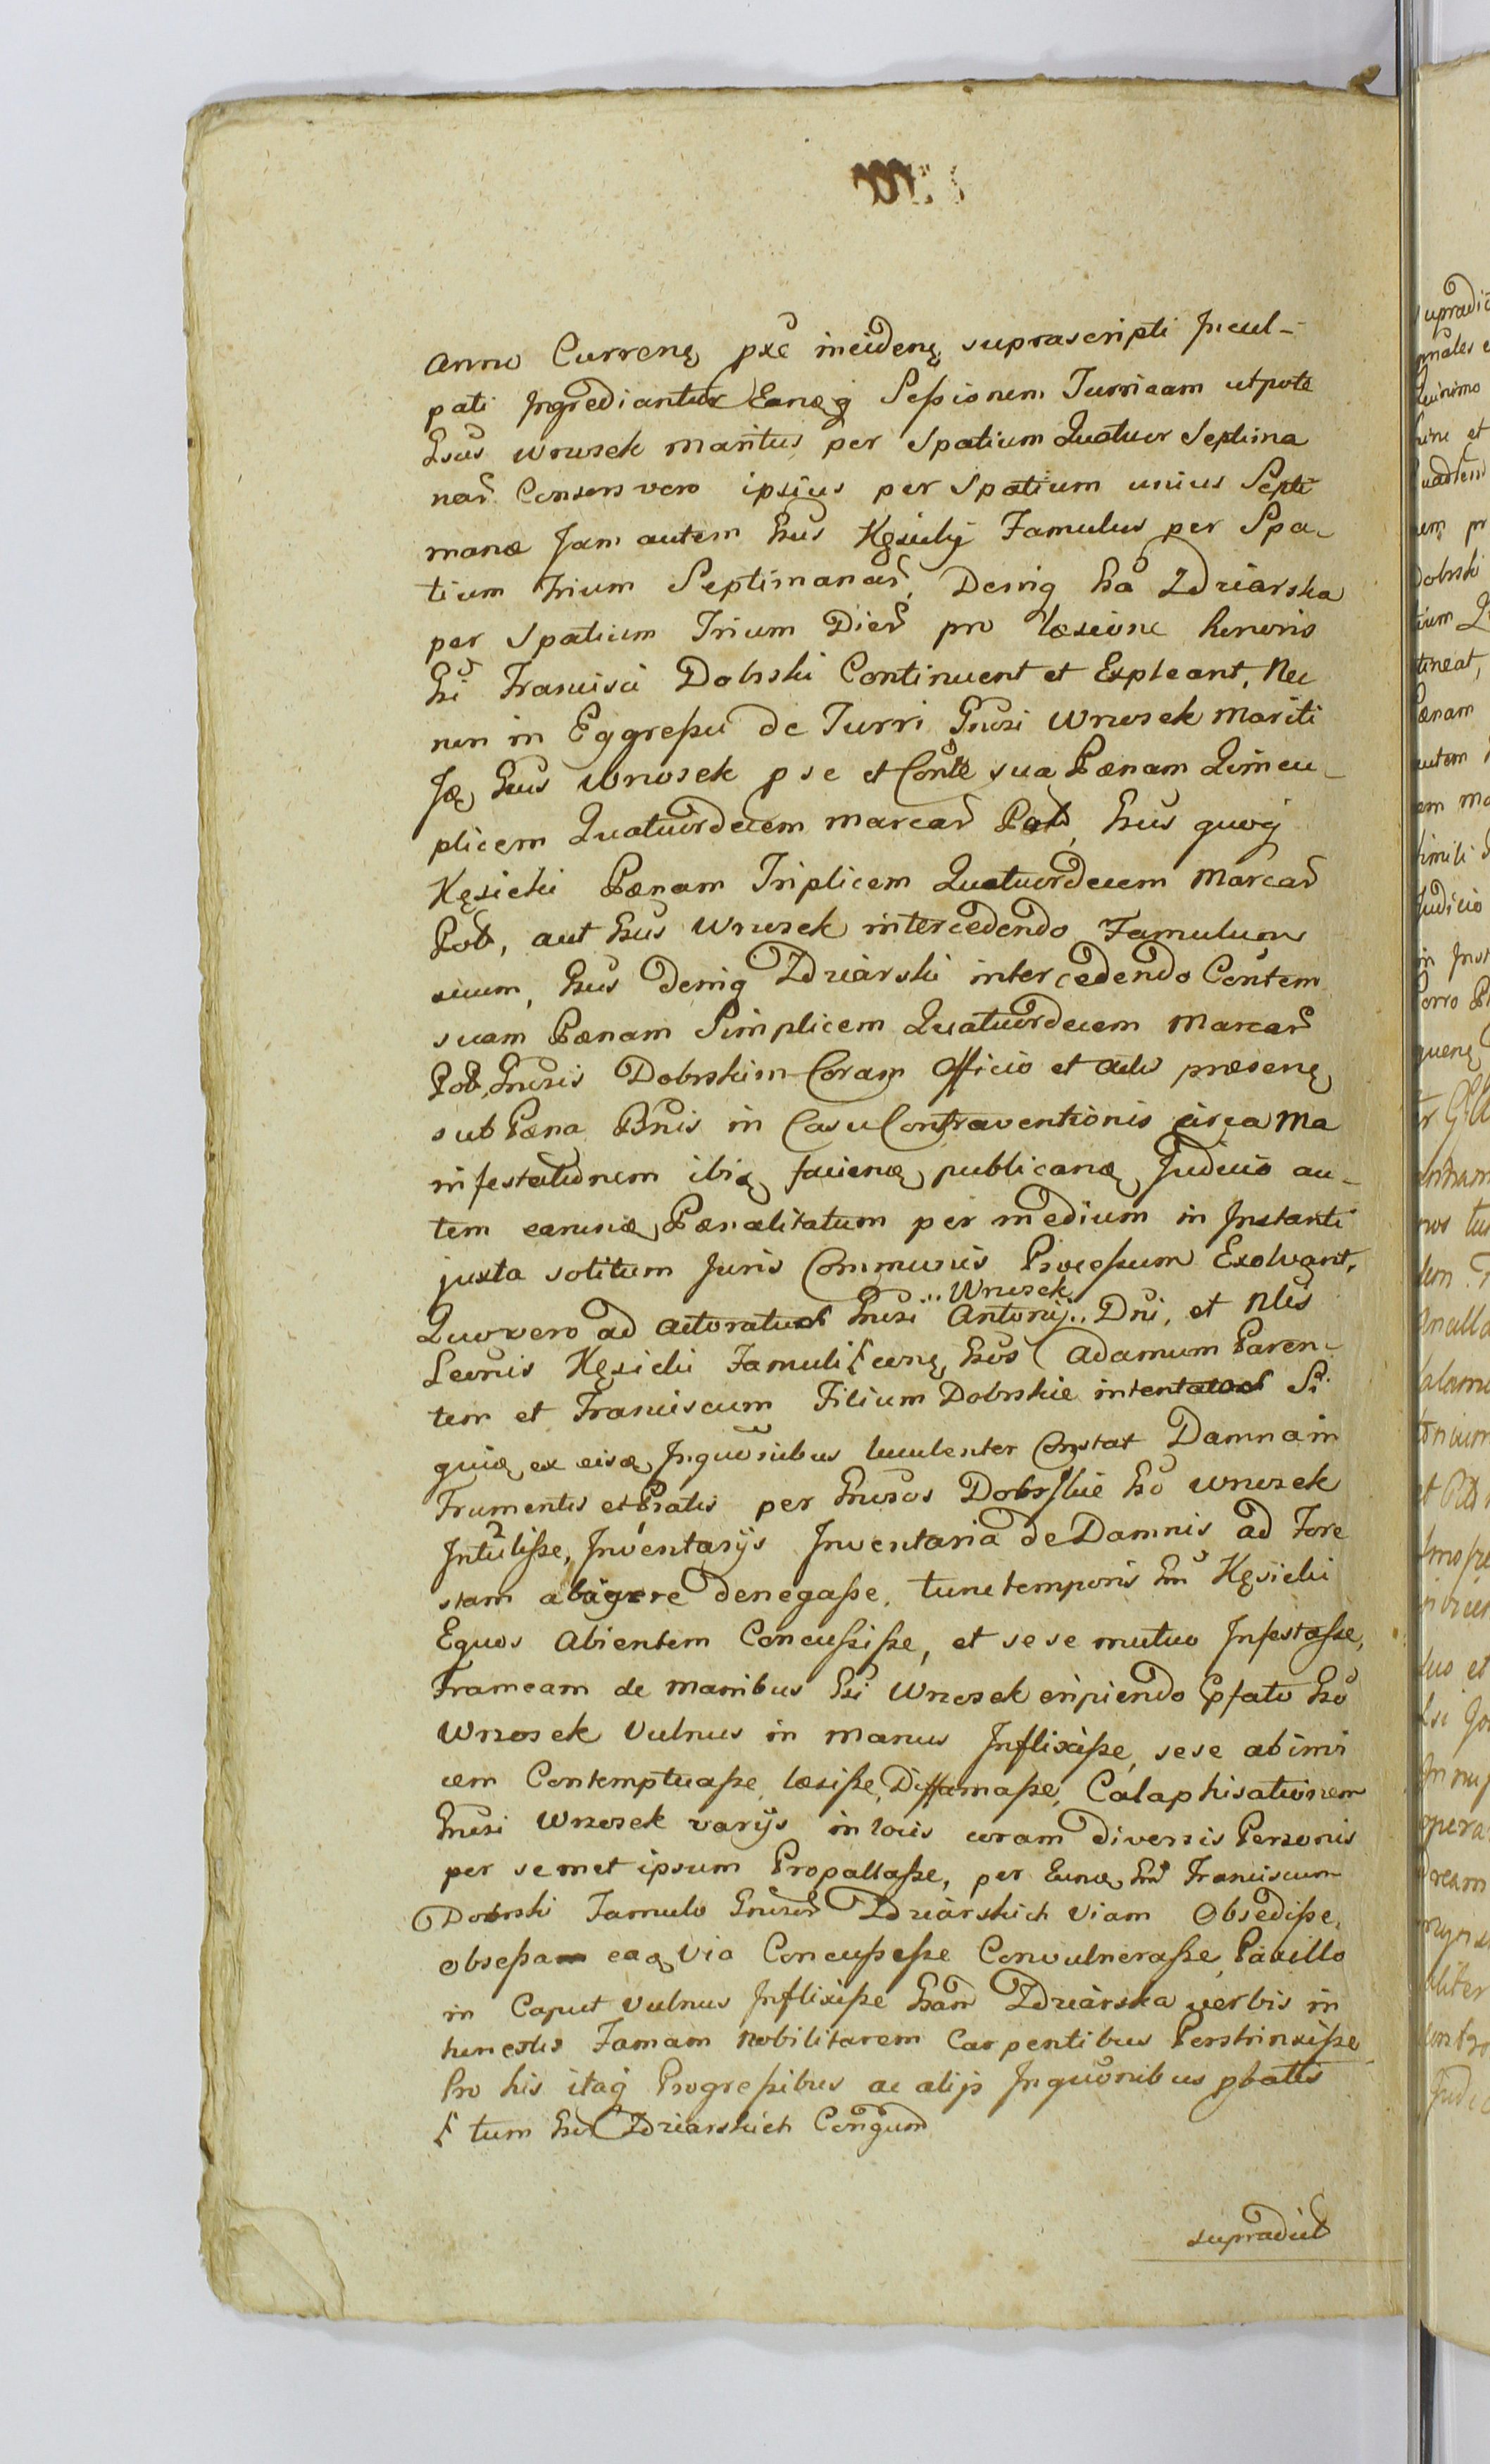 Anno Curren, pxe inciden, suprascripti Incul-
pati Ingrediantur Eanq Sessionem Turricam utpote
Gsus Wrzosek maritus per Spatium Quatuor Septima
nar Consors vero ipsius per Spatium unius Septi
manæ Jam autem Gsus Kęsicky Famulus per Spa-
tium Trium Septimanar, Deniq Gsa Zdziarska
per Spatium Trium Dier pro læsione honoris
Gsi Francisci Dobrski Continuent et Expleant, Nec
non in Eggressu de Turri Gnrosi Wrzosek mariti
Gsus Wrzosek p se et Conte sua Pænam Quincu-
plicem Quatuordecem marcar Pol, Gsus quoq
Kęsicki Pænam Triplicem Quatuordecem Marcar
Pol, aut Gsus Wrzosek intercedendo Famulum
suum, Gsus deniq Zdziarski intercedendo Contem
suam Pænam Simplicem Quatuordecem Marcar
Pol, Gnrosis Dobrskim Coram Officio et actis præsen,
sub Pæna Bnis in Casu Contraventionis circa Ma
nifestationem ibi, facien, publican, Judicio au-
tem earun, Pænalitatum per medium in Instanti
juxta solitum Juris Communis Processum Exolvant,
Quo vero ad actoratum Gnrosi Antonij Dni, et Nlis
.. Wrzosek
Leonis Kęsicki Famuli [ con, Gsos Adamum Paren-
tem et Franciscum Filium Dobrskie intentatos Si
qui, ex eis, Inquonibus luculenter Constat Damna in
Frumentis et Pratis per Gnrosos Dobrskie Gso Wrzosek
Intulisse, Inventarijs Inventaria de Damnis ad Fore
stam abigere denegasse, tunc temporis Gsm Kęsicki
Equos Abientem Concussisse, et sese mutuo Infestasse,
Frameam de manibus Gsi Wrzosek eripiendo Pfato Gso
Wrzosek Vulnus in manus Inflixisse, sese abinvi
cem Contemptuasse, læsisse, Diffamasse, Calaphisationem
Gnrosi Wrzosek varijs in locis coram diversis Personis
per semet ipsum Propallasse, per Eun, Gsm Franciscum
Dobrski Famulo Gnrosor Zdziarskich Viam Obsedisse,
obsessa ea, via Concussesse Convulnerasse, Paxillo
in Caput Vulnus Inflixisse Gsam Zdziarska verbis in
honestis Famam Nobilitarem Carpentibus Perstrinxisse
Pro his itaq Progressibus ac alijs Inquonibus pbatis
[ tum Gsor Zdziarskich Congum
supradict